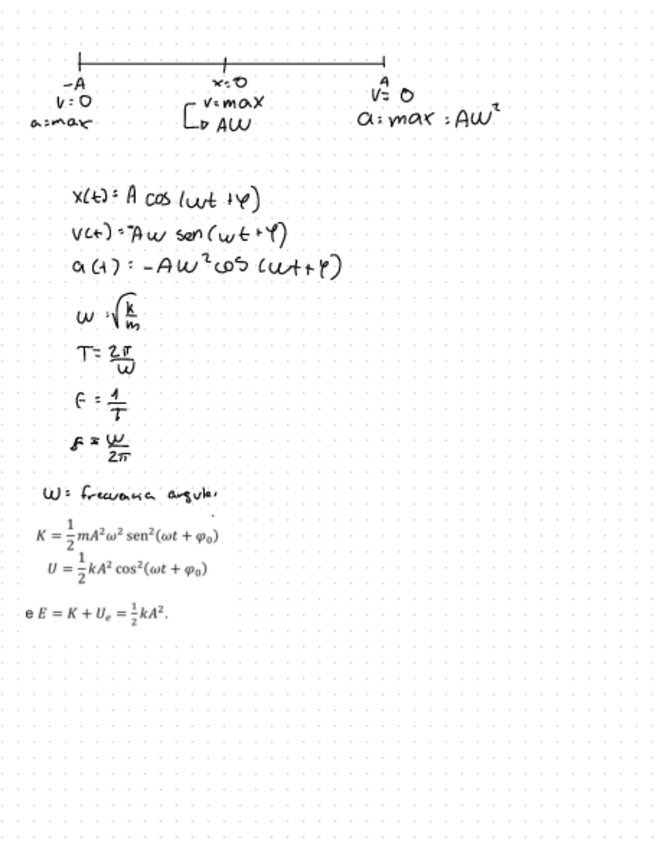 -A x=0 A
v=0 v=max v=0
a=max AW a=max=AW²
x(t)= A cos (wt+φ)
v(t)=-Aw sen(wt+φ)
a(t)= -AW²cos (wt+φ)
w=√k/m
T=2π/W
F=1/T
f=W/2π
W= frecuencia angular
K = 1/2 mA²ω² sen²(ωt + φ₀)
U = 1/2 kA² cos²(ωt + φ₀)
e E = K + Uₑ = 1/2 kA².